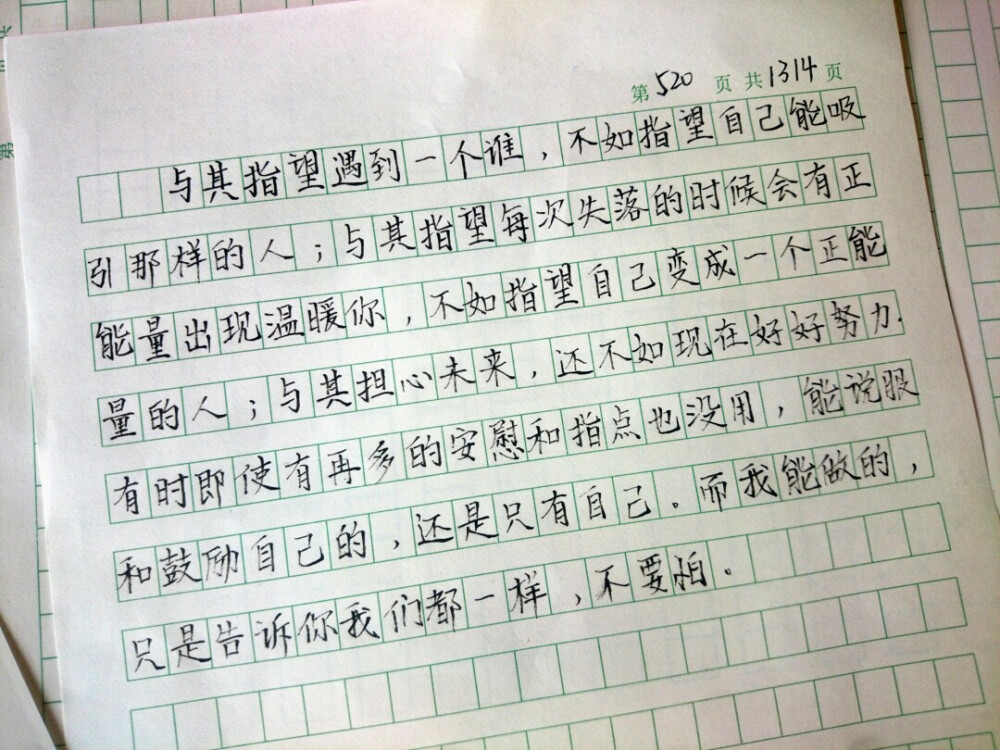 第520页 共1314页
与其指望遇到一个谁，不如指望自己能吸
引那样的人；与其指望每次失落的时候会有正
能量出现温暖你，不如指望自己变成一个正能
量的人；与其担心未来，还不如现在好好努力.
有时即使有再多的安慰和指点也没用，能说服
和鼓励自己的，还是只有自己。而我能做的，
只是告诉你我们都一样，不要怕。
第